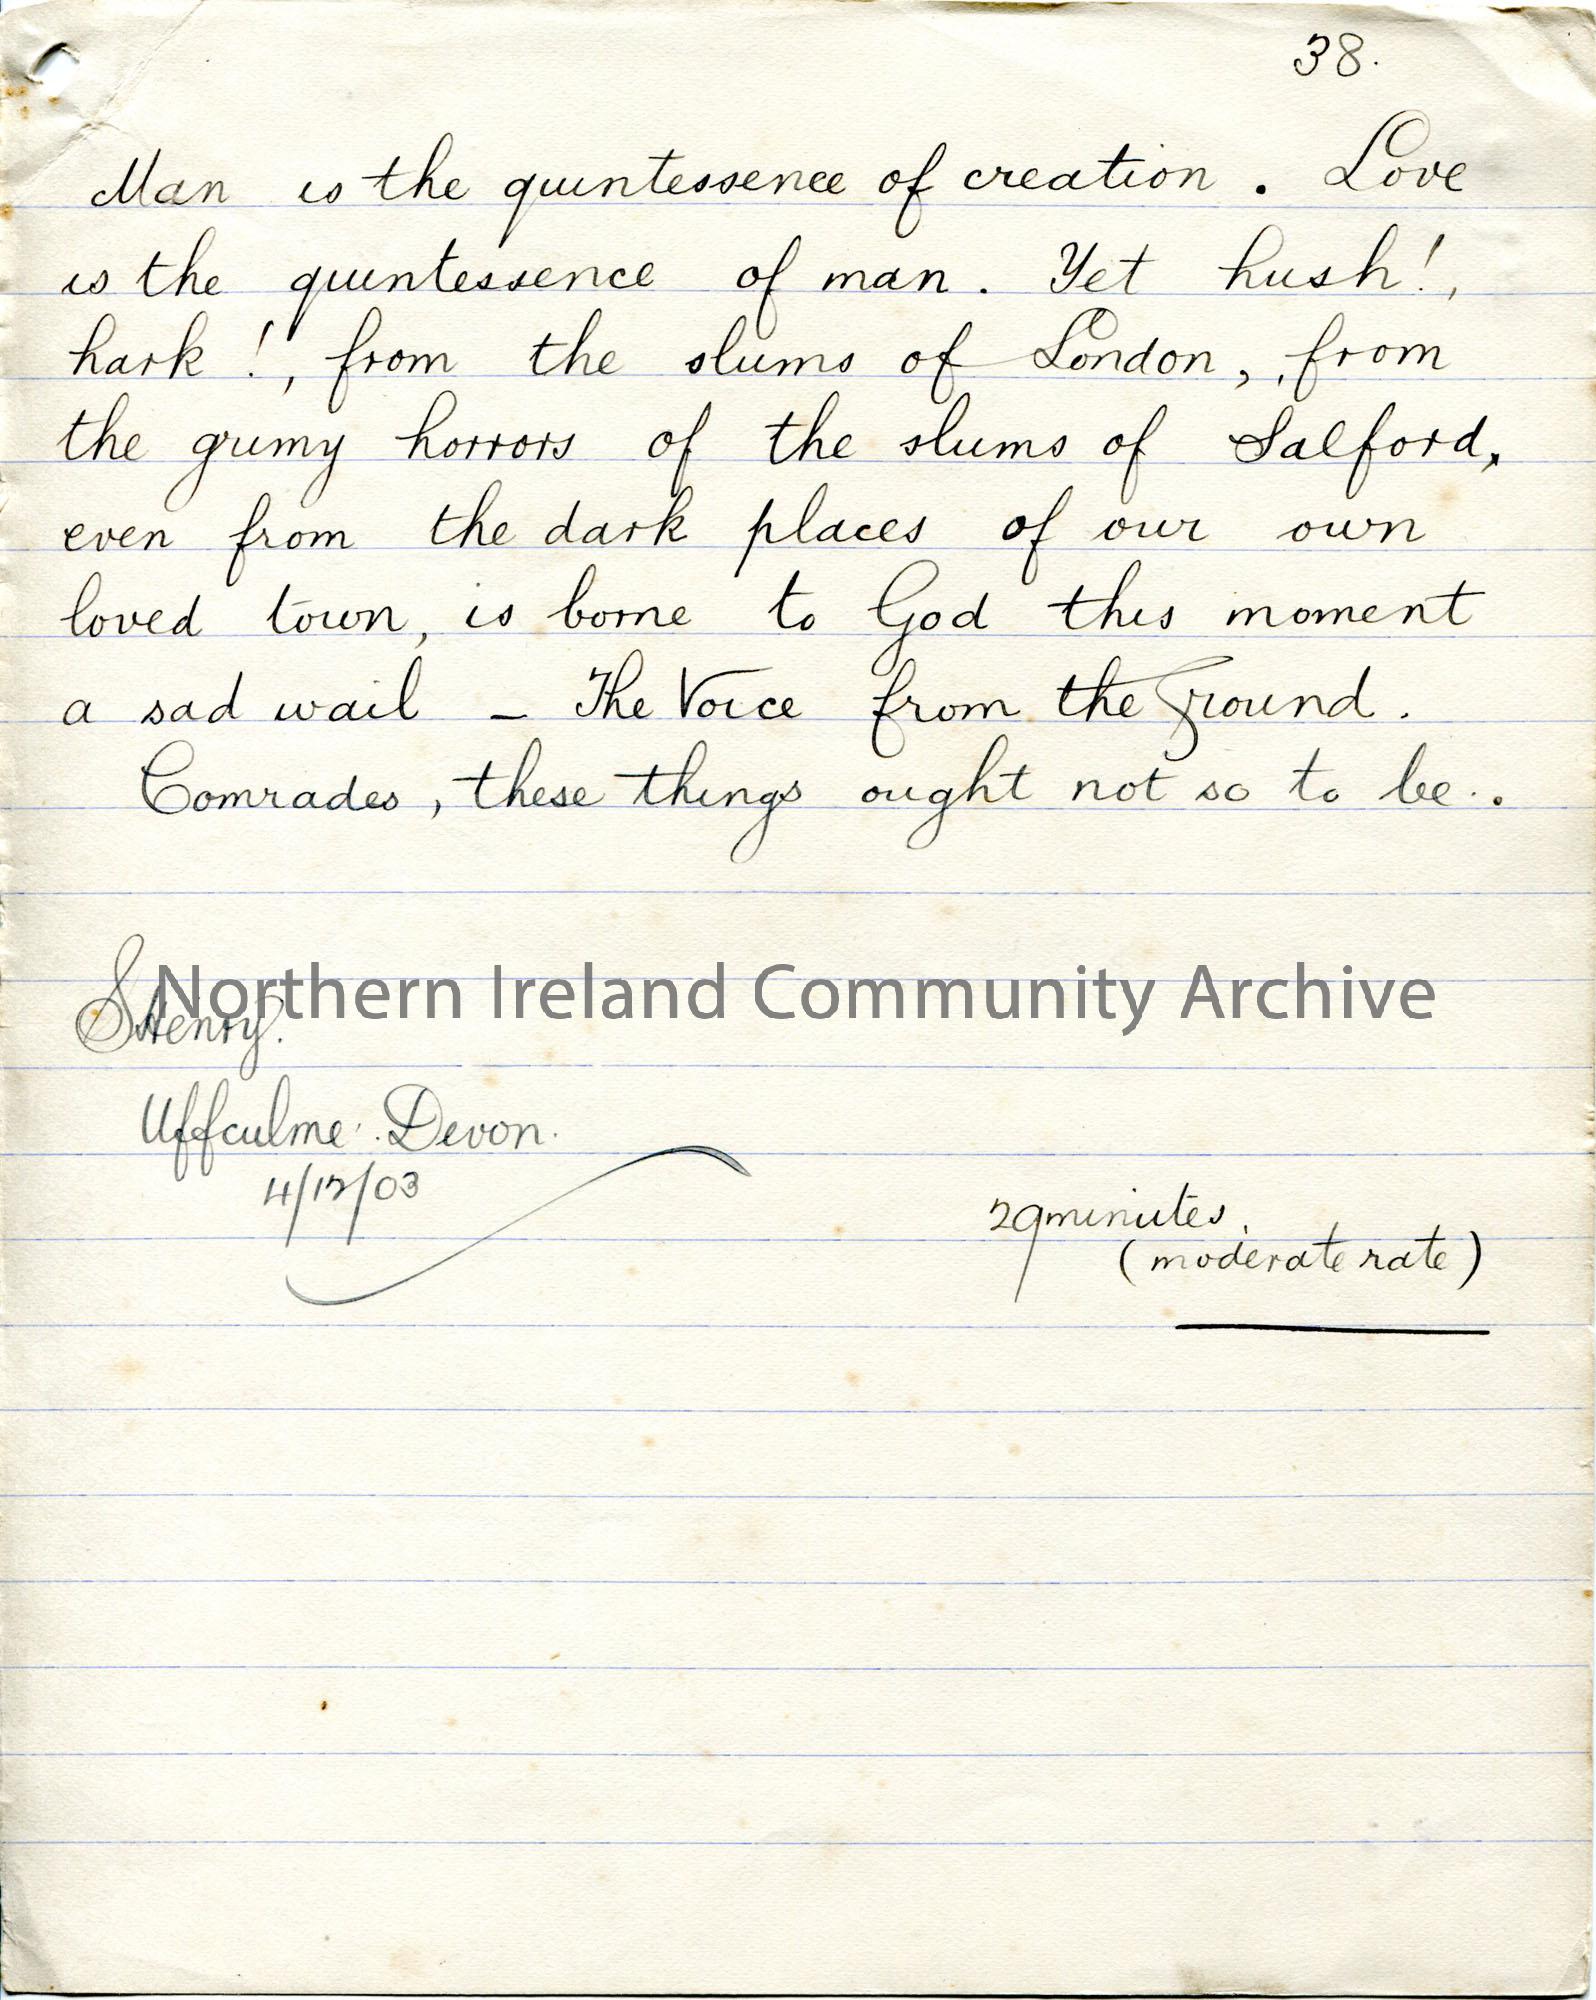 38.
Man is the quintessence of creation. Love
is the quintessence of man. Yet hush!,
hark!, from the slums of London, from
the grimy horrors of the slums of Salford,
even from the dark places of our own
loved town, is borne to God this moment
a sad wail – The Voice from the Ground.
Comrades, these things ought not so to be.
Northern Ireland Community Archive
SHenry.
Uffculme. Devon.
4/12/03
29 minutes.
(moderate rate)